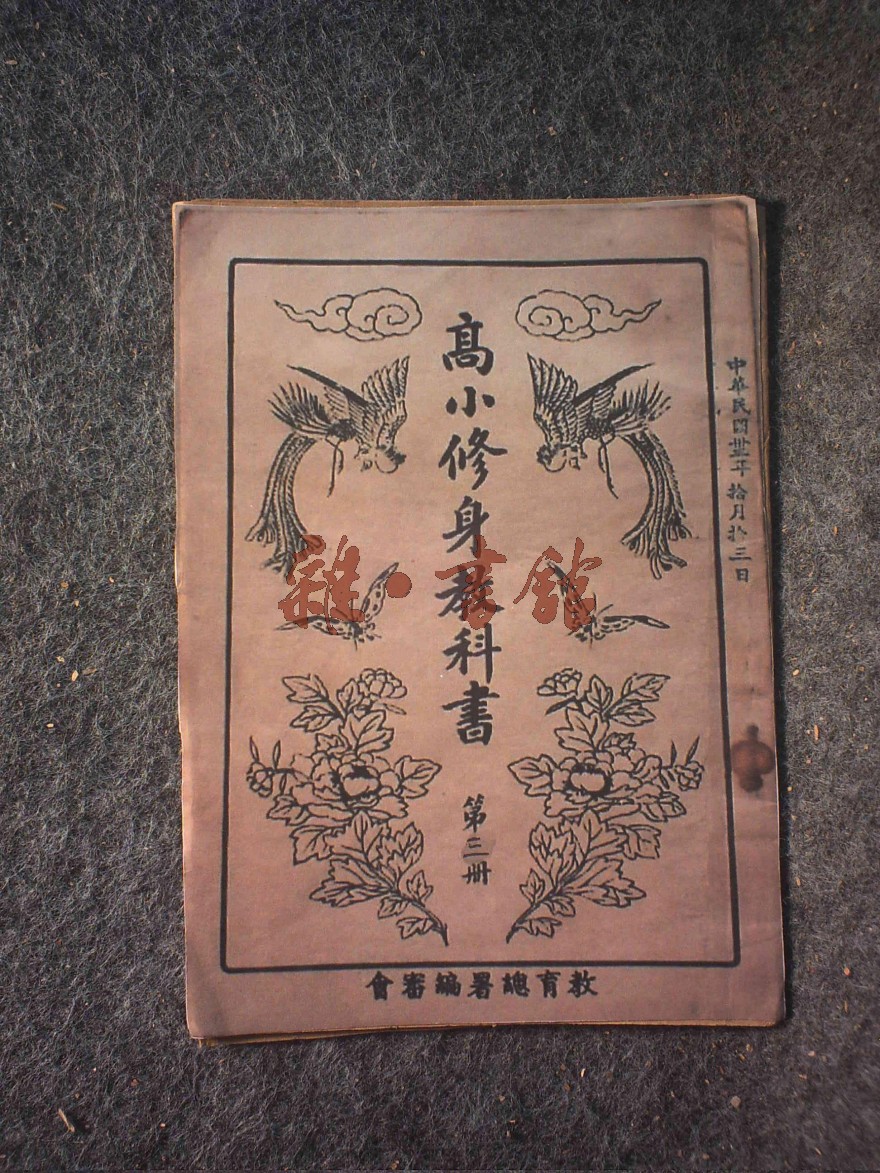 中華民國卅二年拾月拾三日
高小修身教科書
第三册
教育總署編審會
雜·書館